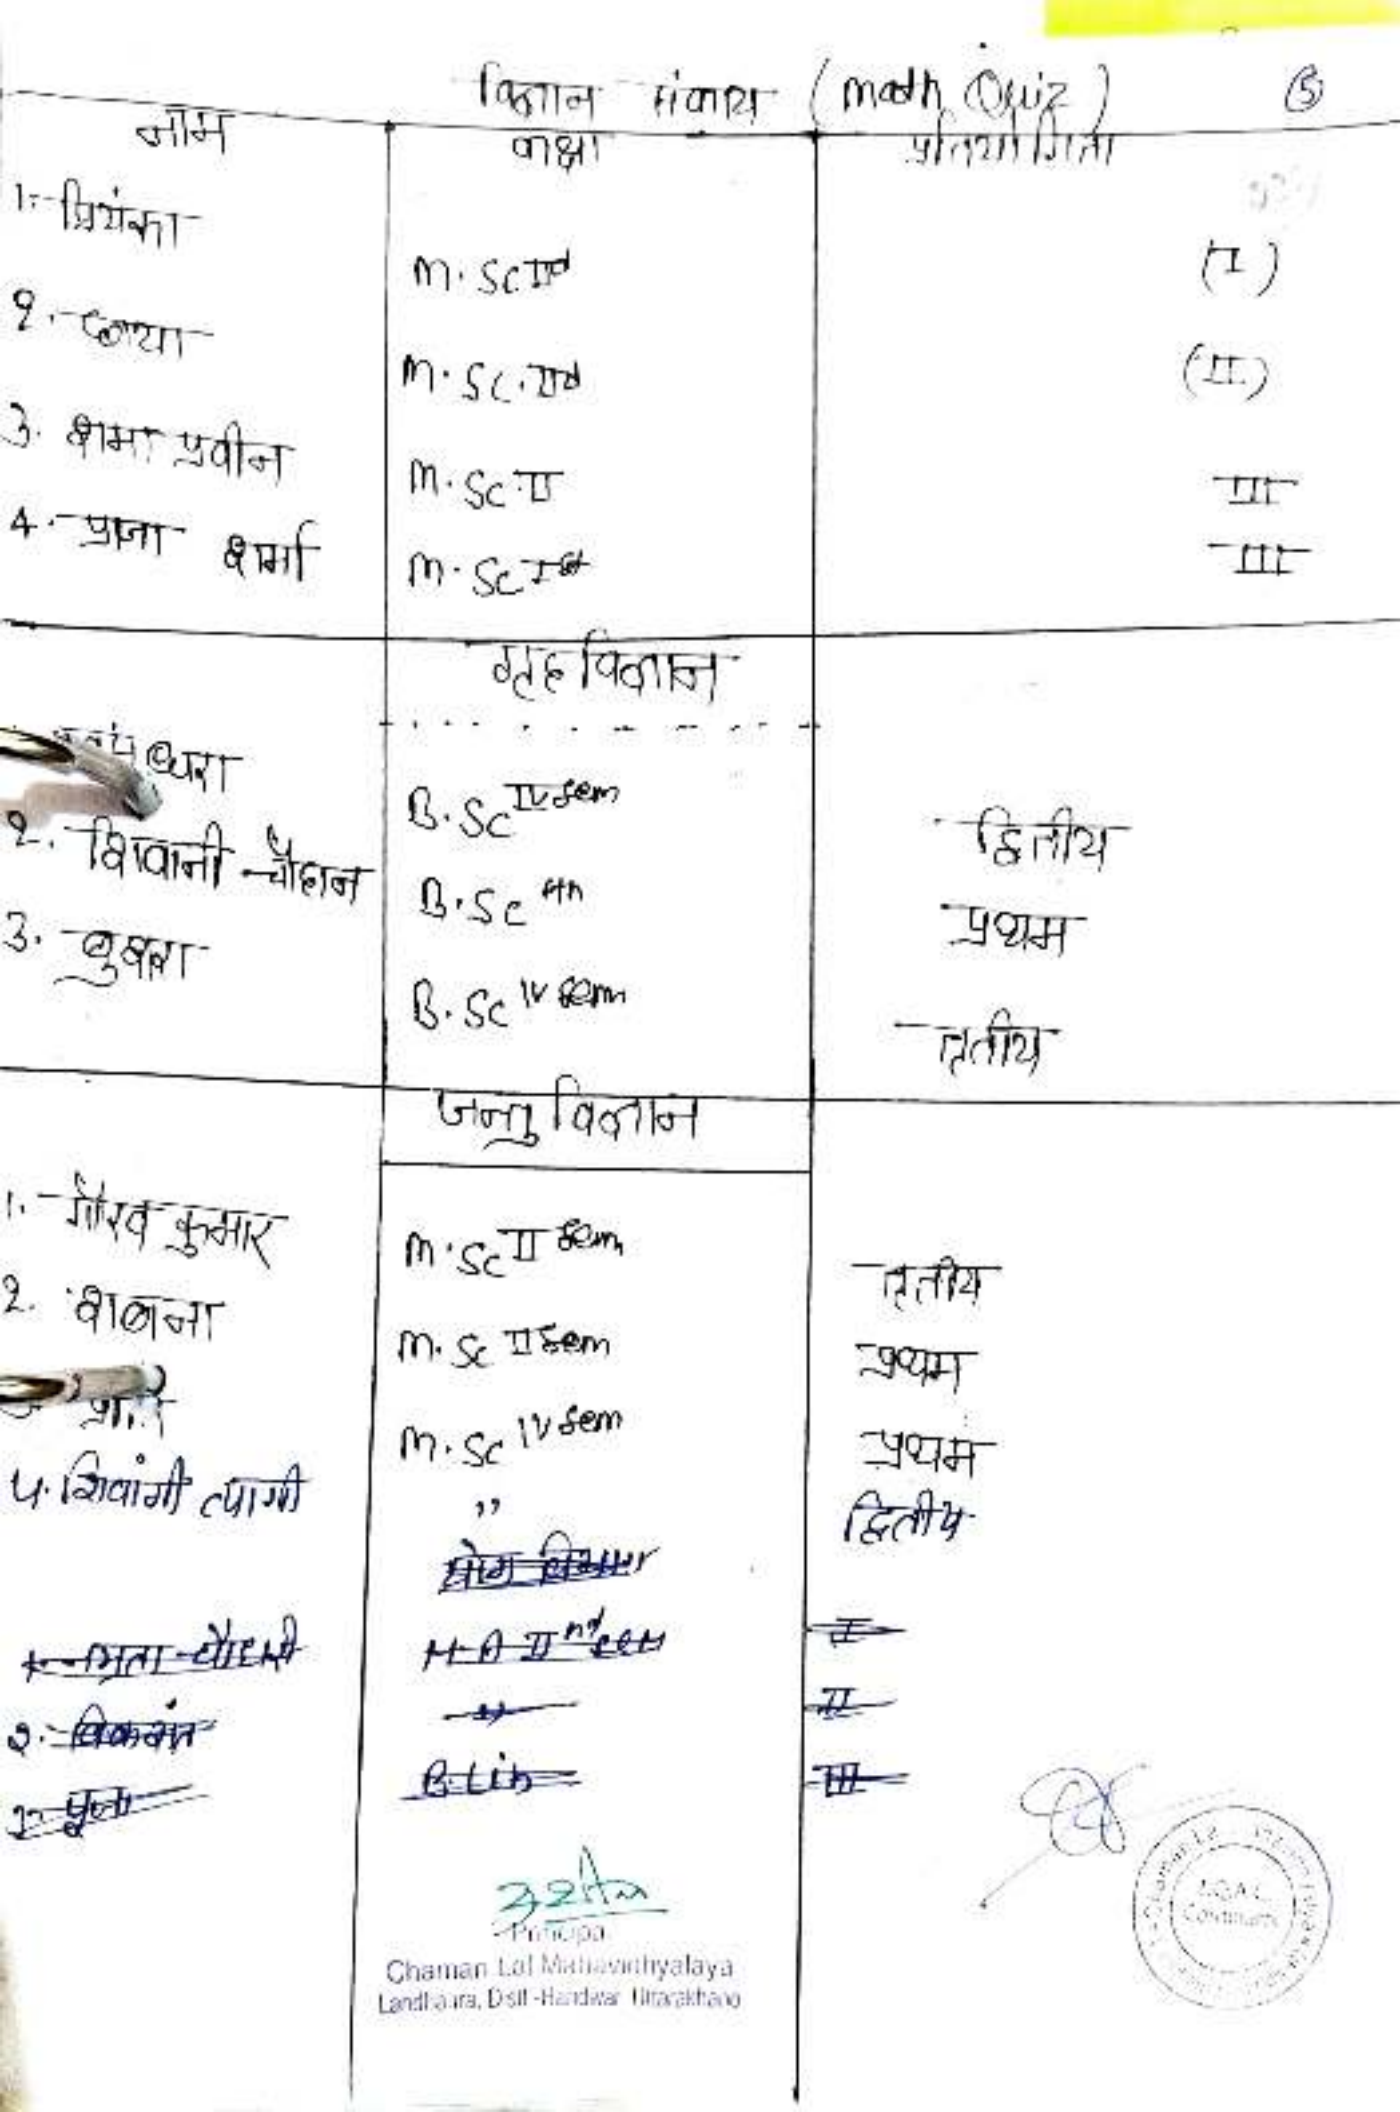 विज्ञान संकाय (math Quiz) 5
नाम कक्षा प्रतियोगिता
1:- प्रियंका M.Sc IInd (I)
2.- छाया M.Sc. IInd (II)
3. शमा प्रवीन M.Sc. II III
4.- प्रज्ञा शर्मा M.Sc Ist III
गृह विज्ञान
B.Sc IV sem द्वितीय
2. शिवानी चौहान B.Sc 4th प्रथम
3. बुशरा B.Sc IV sem तृतीय
जन्तु विज्ञान
1. गौरव कुमार M.Sc II sem तृतीय
2. शबाना M.Sc II sem प्रथम
M.Sc IV sem प्रथम
4. शिवांगी त्यागी " द्वितीय
योग विज्ञान
चौधरी M.A IInd sem I
2.- विक्रांत " II
पूजा B.Lib III
Principal
Chaman Lal Mahavidhyalaya
Landhaura, Distt-Haridwar Uttarakhand
I.Q.A.C.